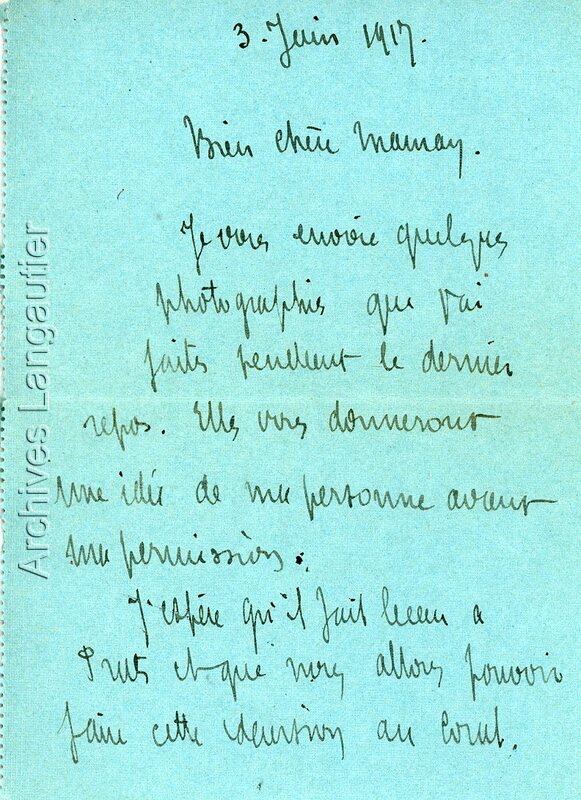 3. Juin 1917.
Bien chère Maman.
Je vous envoie quelques
photographies que j'ai
faites pendant le dernier
repos. Elles vous donneront
une idée de ma personne avant
ma permission.
J'espère qu'il fait beau a
Prats et que nous allons pouvoir
faire cette excursion au
Archives Langautier